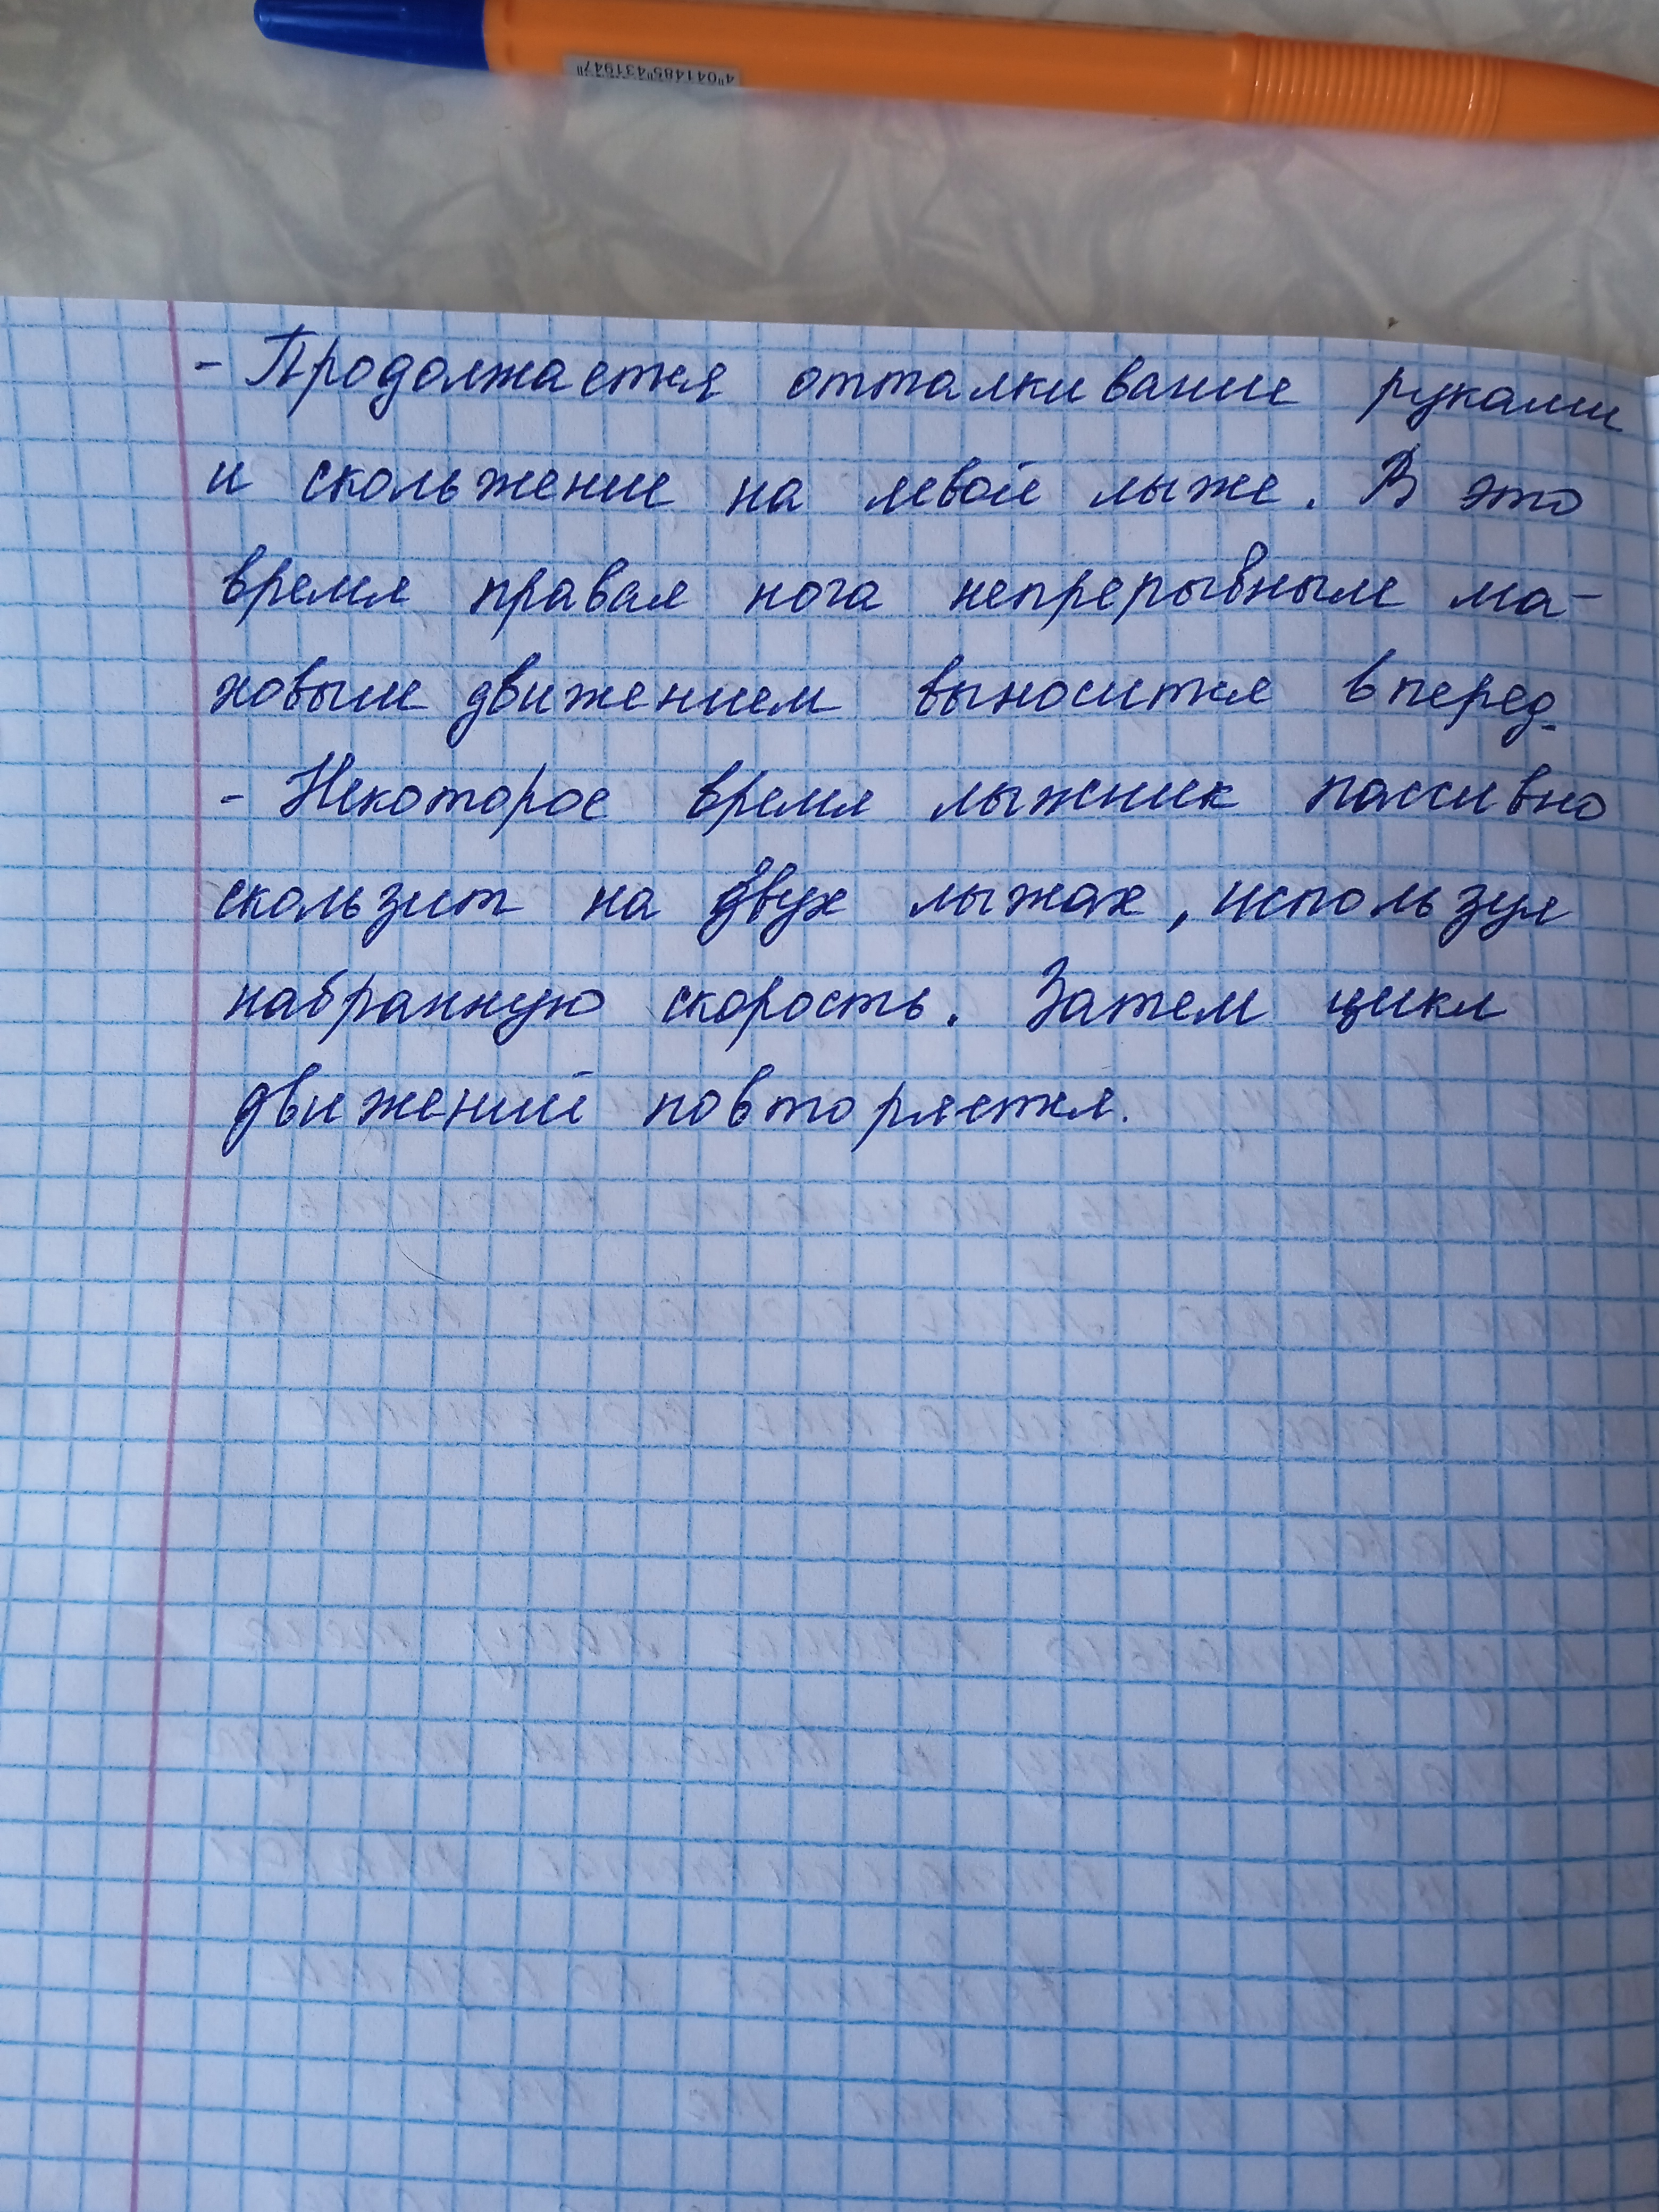 4"041485"431947"
- Продолжается отталкивание руками
и скольжение на левой лыже. В это
время правая нога непрерывным ма-
ховым движением выносится вперед.
- Некоторое время лыжник пассивно
скользит на двух лыжах, используя
набранную скорость. Затем цикл
движений повторяется.